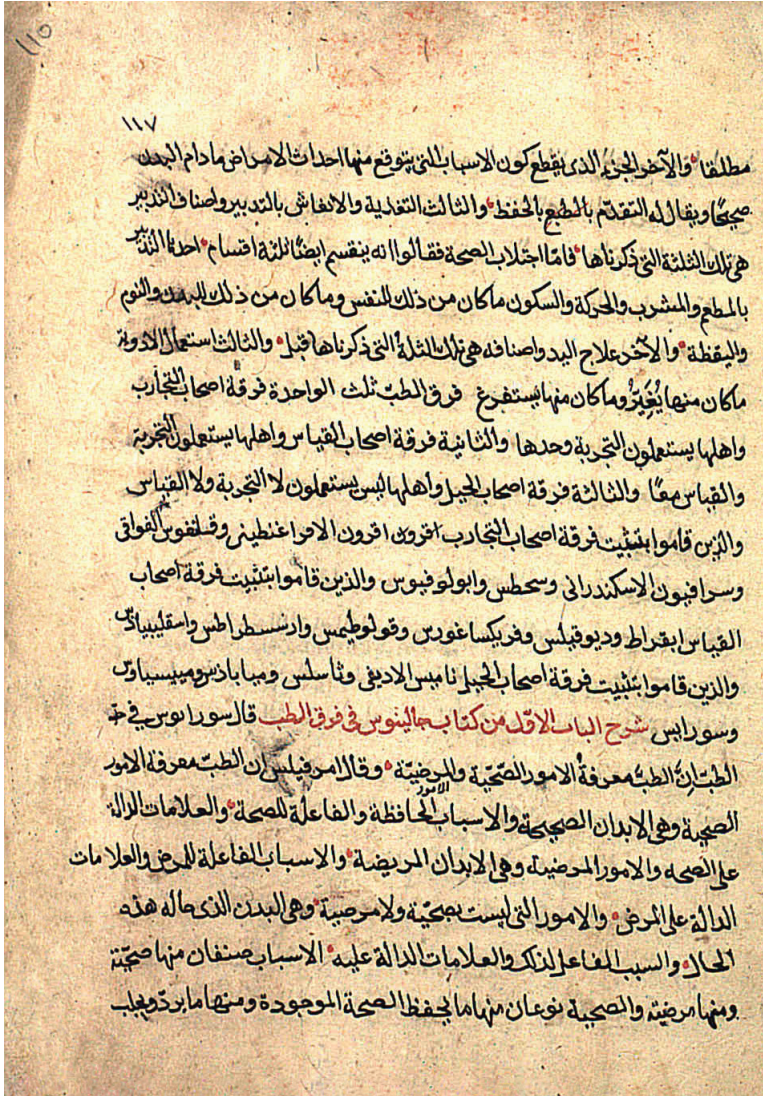 ١١٥
١١٧
مطلقا والآخر الجزء الذى يقطع كون الاسباب التى يتوقع منها احداث الامراض ما دام البدن
صحيحًا ويقال له التقدّم بالحفظ والثالث التغذية والانعاش بالتدبير واصناف التدبير
هى تلك الثلثة التى ذكرناها فامّا اجتلاب الصحة فقالوا انه ينقسم ايضًا ثلثة اقسام احدها التدبير
بالمطعم والمشرب والحركة والسكون ما كان من ذلك للنفس وما كان من ذلك للبدن والنوم
واليقظة والآخر علاج اليد واصنافه هى تلك الثلثة التى ذكرناها قبل والثالث استعمال الادوية
ما كان منها يُغَيِّرُ وما كان منها يستفرغ فرق الطبّ ثلث الواحدة فرقة اصحاب التجارب
واهلها يستعملون التجربة وحدها والثانية فرقة اصحاب القياس واهلها يستعملون التجربة
والقياس معًا والثالثة فرقة اصحاب الحيل وأهلها ليس يستعملون لا التجربة ولا القياس
والذين قاموا بتثبيت فرقة اصحاب التجارب اقرون اقرون الاقراغنطينى وفيلنفوس القواقى
وسرافيون الاسكندرانى وسحطس وابولوفيوس والذين قاموا بتثبيت فرقة اصحاب
القياس ابقراط وديوقيلس وفريكساغورس وقولوطيمس وارسسطراطس واسقليبيادس
والذين قاموا بتثبيت فرقة اصحاب الحيل ثاميس الاديقى وثاسلس ومياباذس ومييسياوس
وسورايس شرح الباب الاوّل من كتاب جالينوس فى فرق الطب قال سورانوس فى حد
الطبّ انّ الطبّ معرفةُ الامور الصّحّية والمرضيّة وقال ايروفيلس ان الطبّ معرفة الامور
الصحية وهى الابدان الصحيحة والاسباب الحافظة والفاعلة للصحة والعلامات الدالة
على الصحه والامور المرضية وهى الابدان المريضة والاسباب الفاعلة للمرض والعلامات
الدالة على المرض والامور التى ليست بصحّية ولا مرضية وهى البدن الذى حاله هذه
الحال والسبب الفاعل لذلك والعلامات الدالة عليه الاسباب صنفان منها صحّيّة
ومنها مرضيّة والصحية نوعان منها ما يحفظ الصحة الموجودة ومنها ما يردّ ويجلب